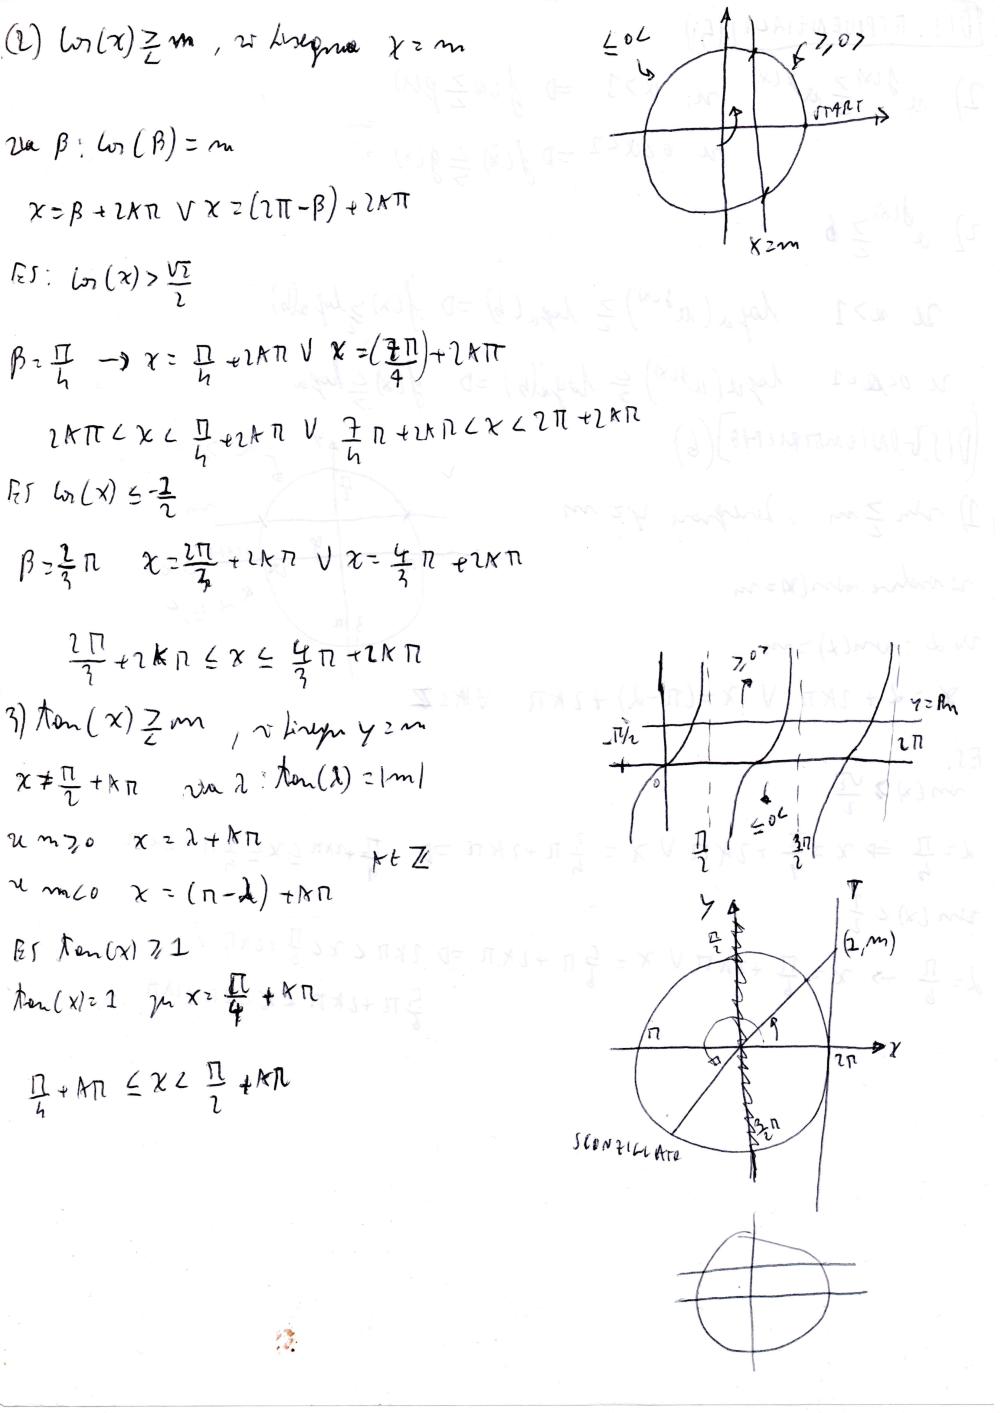 (2) cos(x) ⋛ m , si disegna x = m
≤ 0 <
≥, 0 >
START
x = m
sia β : cos(β) = m
x = β + 2kπ ∨ x = (2π - β) + 2kπ
ES: cos(x) > √2/2
β = π/4 → x = π/4 + 2kπ ∨ x = (7π/4) + 2kπ
2kπ < x < π/4 + 2kπ ∨ 7/4 π + 2kπ < x < 2π + 2kπ
ES cos(x) ≤ -1/2
β = 2/3 π x = 2π/3 + 2kπ ∨ x = 4/3 π + 2kπ
2π/3 + 2kπ ≤ x ≤ 4/3 π + 2kπ
3) tan(x) ⋛ m , si disegna y = m
x ≠ π/2 + kπ sia λ : tan(λ) = |m|
se m ≥ 0 x = λ + kπ
k ∈ ℤ
se m < 0 x = (π - λ) + kπ
ES tan(x) ≥ 1
tan(x) = 1 per x = π/4 + kπ
π/4 + kπ ≤ x < π/2 + kπ
≥, 0 >
-π/2
2π
0
≤ 0 <
π/2
3/2 π
y
T
π/2
(1, m)
π
x
2π
3/2 π